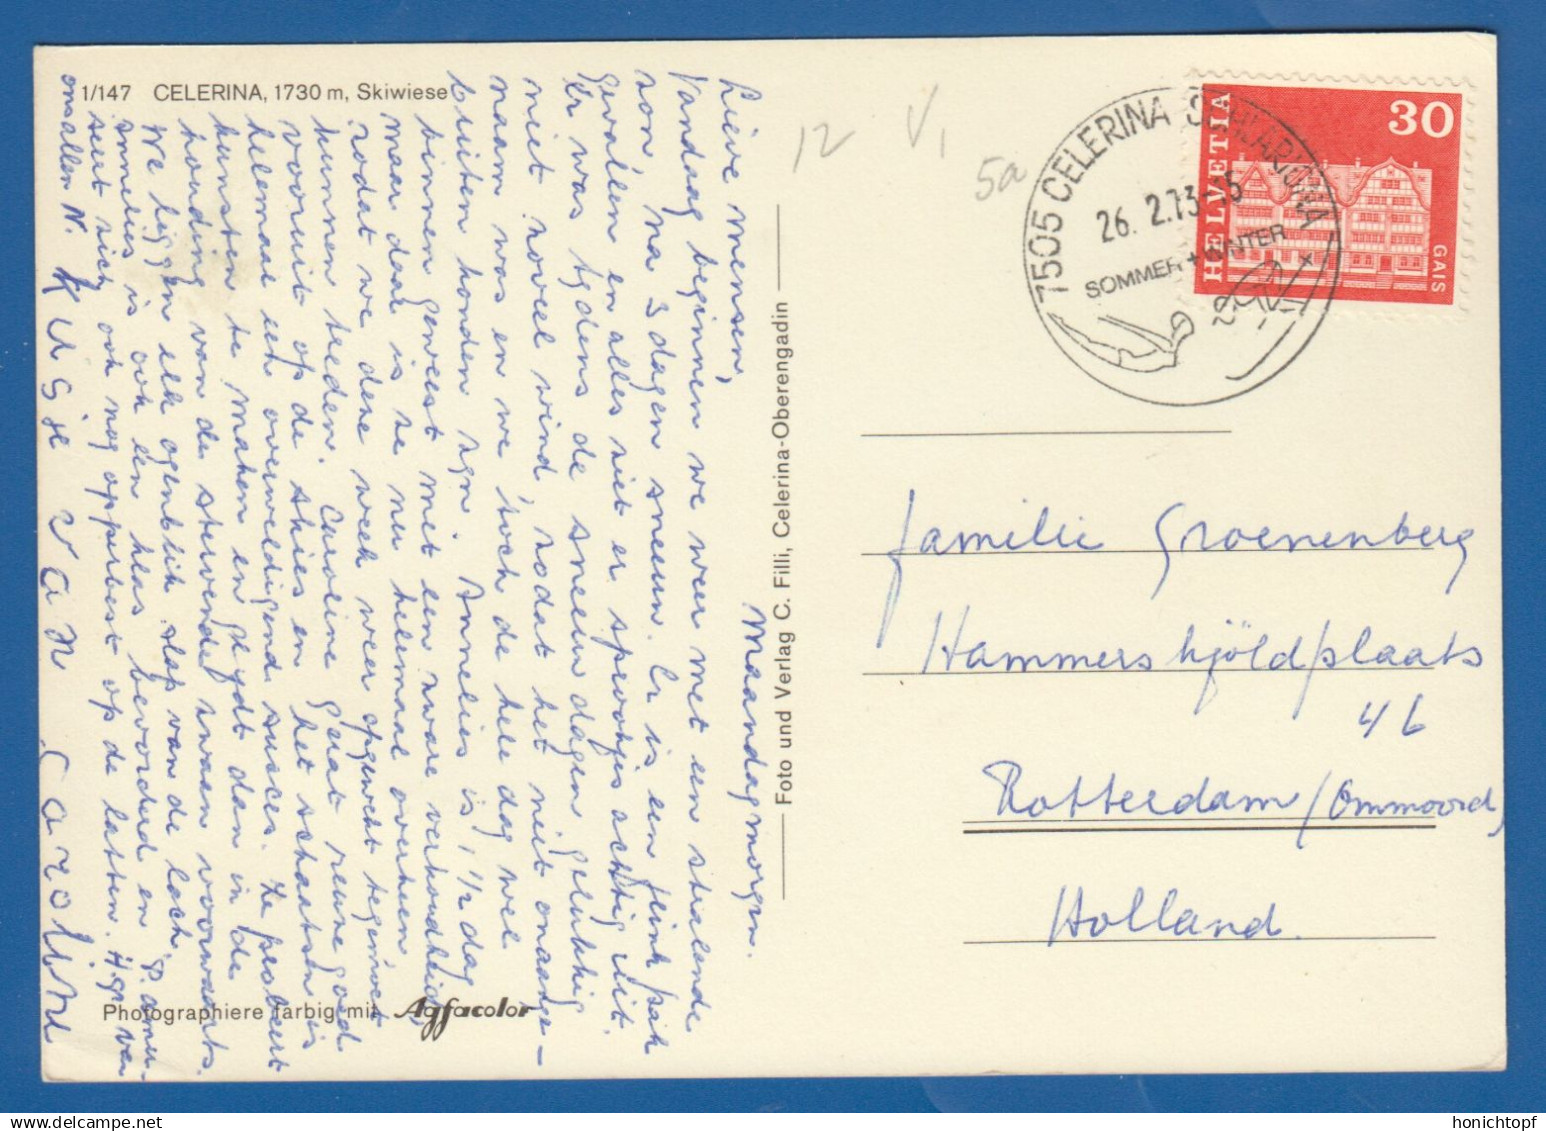 1/147 CELERINA, 1730 m, Skiwiese
Maandagmorgen.
Lieve mensen,
Vandaag beginnen we weer met een stralende
zon, na 3 dagen sneeuw. Er is een flink pak
gevallen en alles ziet er sprookjesachtig uit.
Er was tydens de sneeuwdagen gelukkig
niet zoveel wind, zodat het niet onaange-
naam was en we toch de hele dag wel
buiten konden zyn. Annelies is 1 1/2 dag
binnen geweest met een zware verkoudheid,
maar daar is ze nu helemaal overheen
zodat we deze week weer opgewekt tegemoet
kunnen treden. Caroline gaat reuze goed
vooruit op de skies en het schaatsen is
helemaal een overweldigend succes. Ze probeert
kunsten te maken en glydt dan in de
houding van de stervende zwaan voorwaarts.
We liggen elk ogenblik slap van de lach.
Annelies is ook een klas bevorderd en amu-
seert zich ook nog opperbest op de latten. Hgr. van
ons allen N.
KUSje van Caroline
Photographiere farbig mit Agfacolor
Foto und Verlag C. Filli, Celerina-Oberengadin
12 V1
5a
7505 CELERINA SCHLARIGNA
26. 2.73-15
SOMMER + WINTER
HELVETIA
30
GAIS
familie Groenenberg
Hammerskjöldplaats
46
Rotterdam/Ommoord
Holland.
honichtopf